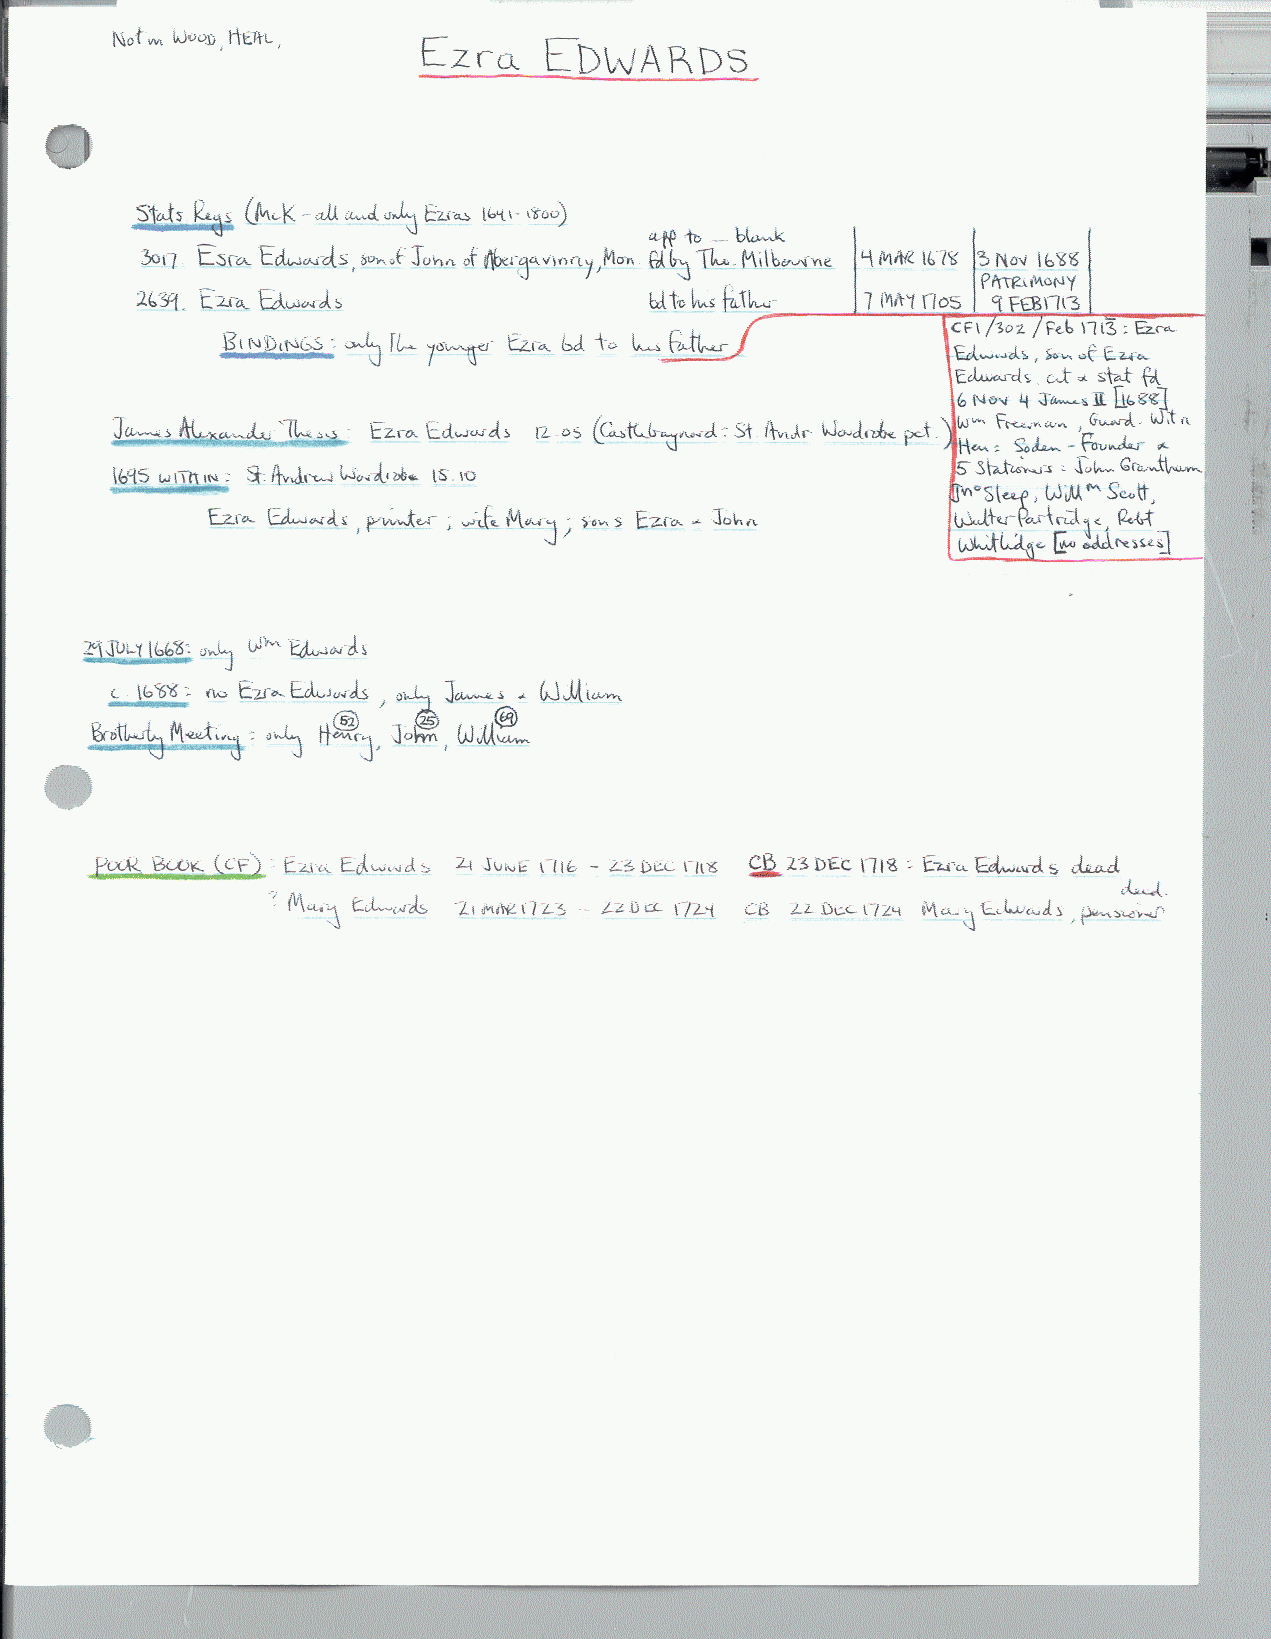 Not in WOOD, HEAL,
Ezra EDWARDS
Stats Regs (McK - all and only Ezras 1641-1800)
app to — blank
3017 Esra Edwards, son of John of Abergavinny, Mon. fd by Tho. Milbourne 4 MAR 1678 3 NOV 1688
PATRIMONY
2639. Ezra Edwards bd to his father 7 MAY 1705 9 FEB 1713
BINDINGS: only the younger Ezra bd to his father
CF1/302/Feb 1713: Ezra
Edwards, son of Ezra
Edwards cit & stat fd
6 NOV 4 James II [1688]
Wm Freeman, Guard. Witn
Hen: Soden - Founder &
5 Stationers: John Grantham
Jno Sleep, Willm Scott,
Walter Partridge, Robt
Whitlidge [no addresses]
James Alexander Thesis: Ezra Edwards 12.05 (Castlebaynard: St Andr Wardrobe pct.)
1695 WITHIN: St. Andrew Wardrobe 15.10
Ezra Edwards, printer; wife Mary; sons Ezra & John
29 JULY 1668: only Wm Edwards
c. 1688: no Ezra Edwards, only James & William
52 25 69
Brotherly Meeting: only Henry, John, William
POOR BOOK (CF): Ezra Edwards 21 JUNE 1716 - 23 DEC 1718 CB 23 DEC 1718: Ezra Edwards dead
dead.
? Mary Edwards 21 MAR 1723 - 22 DEC 1724 CB 22 DEC 1724 Mary Edwards, pensioner